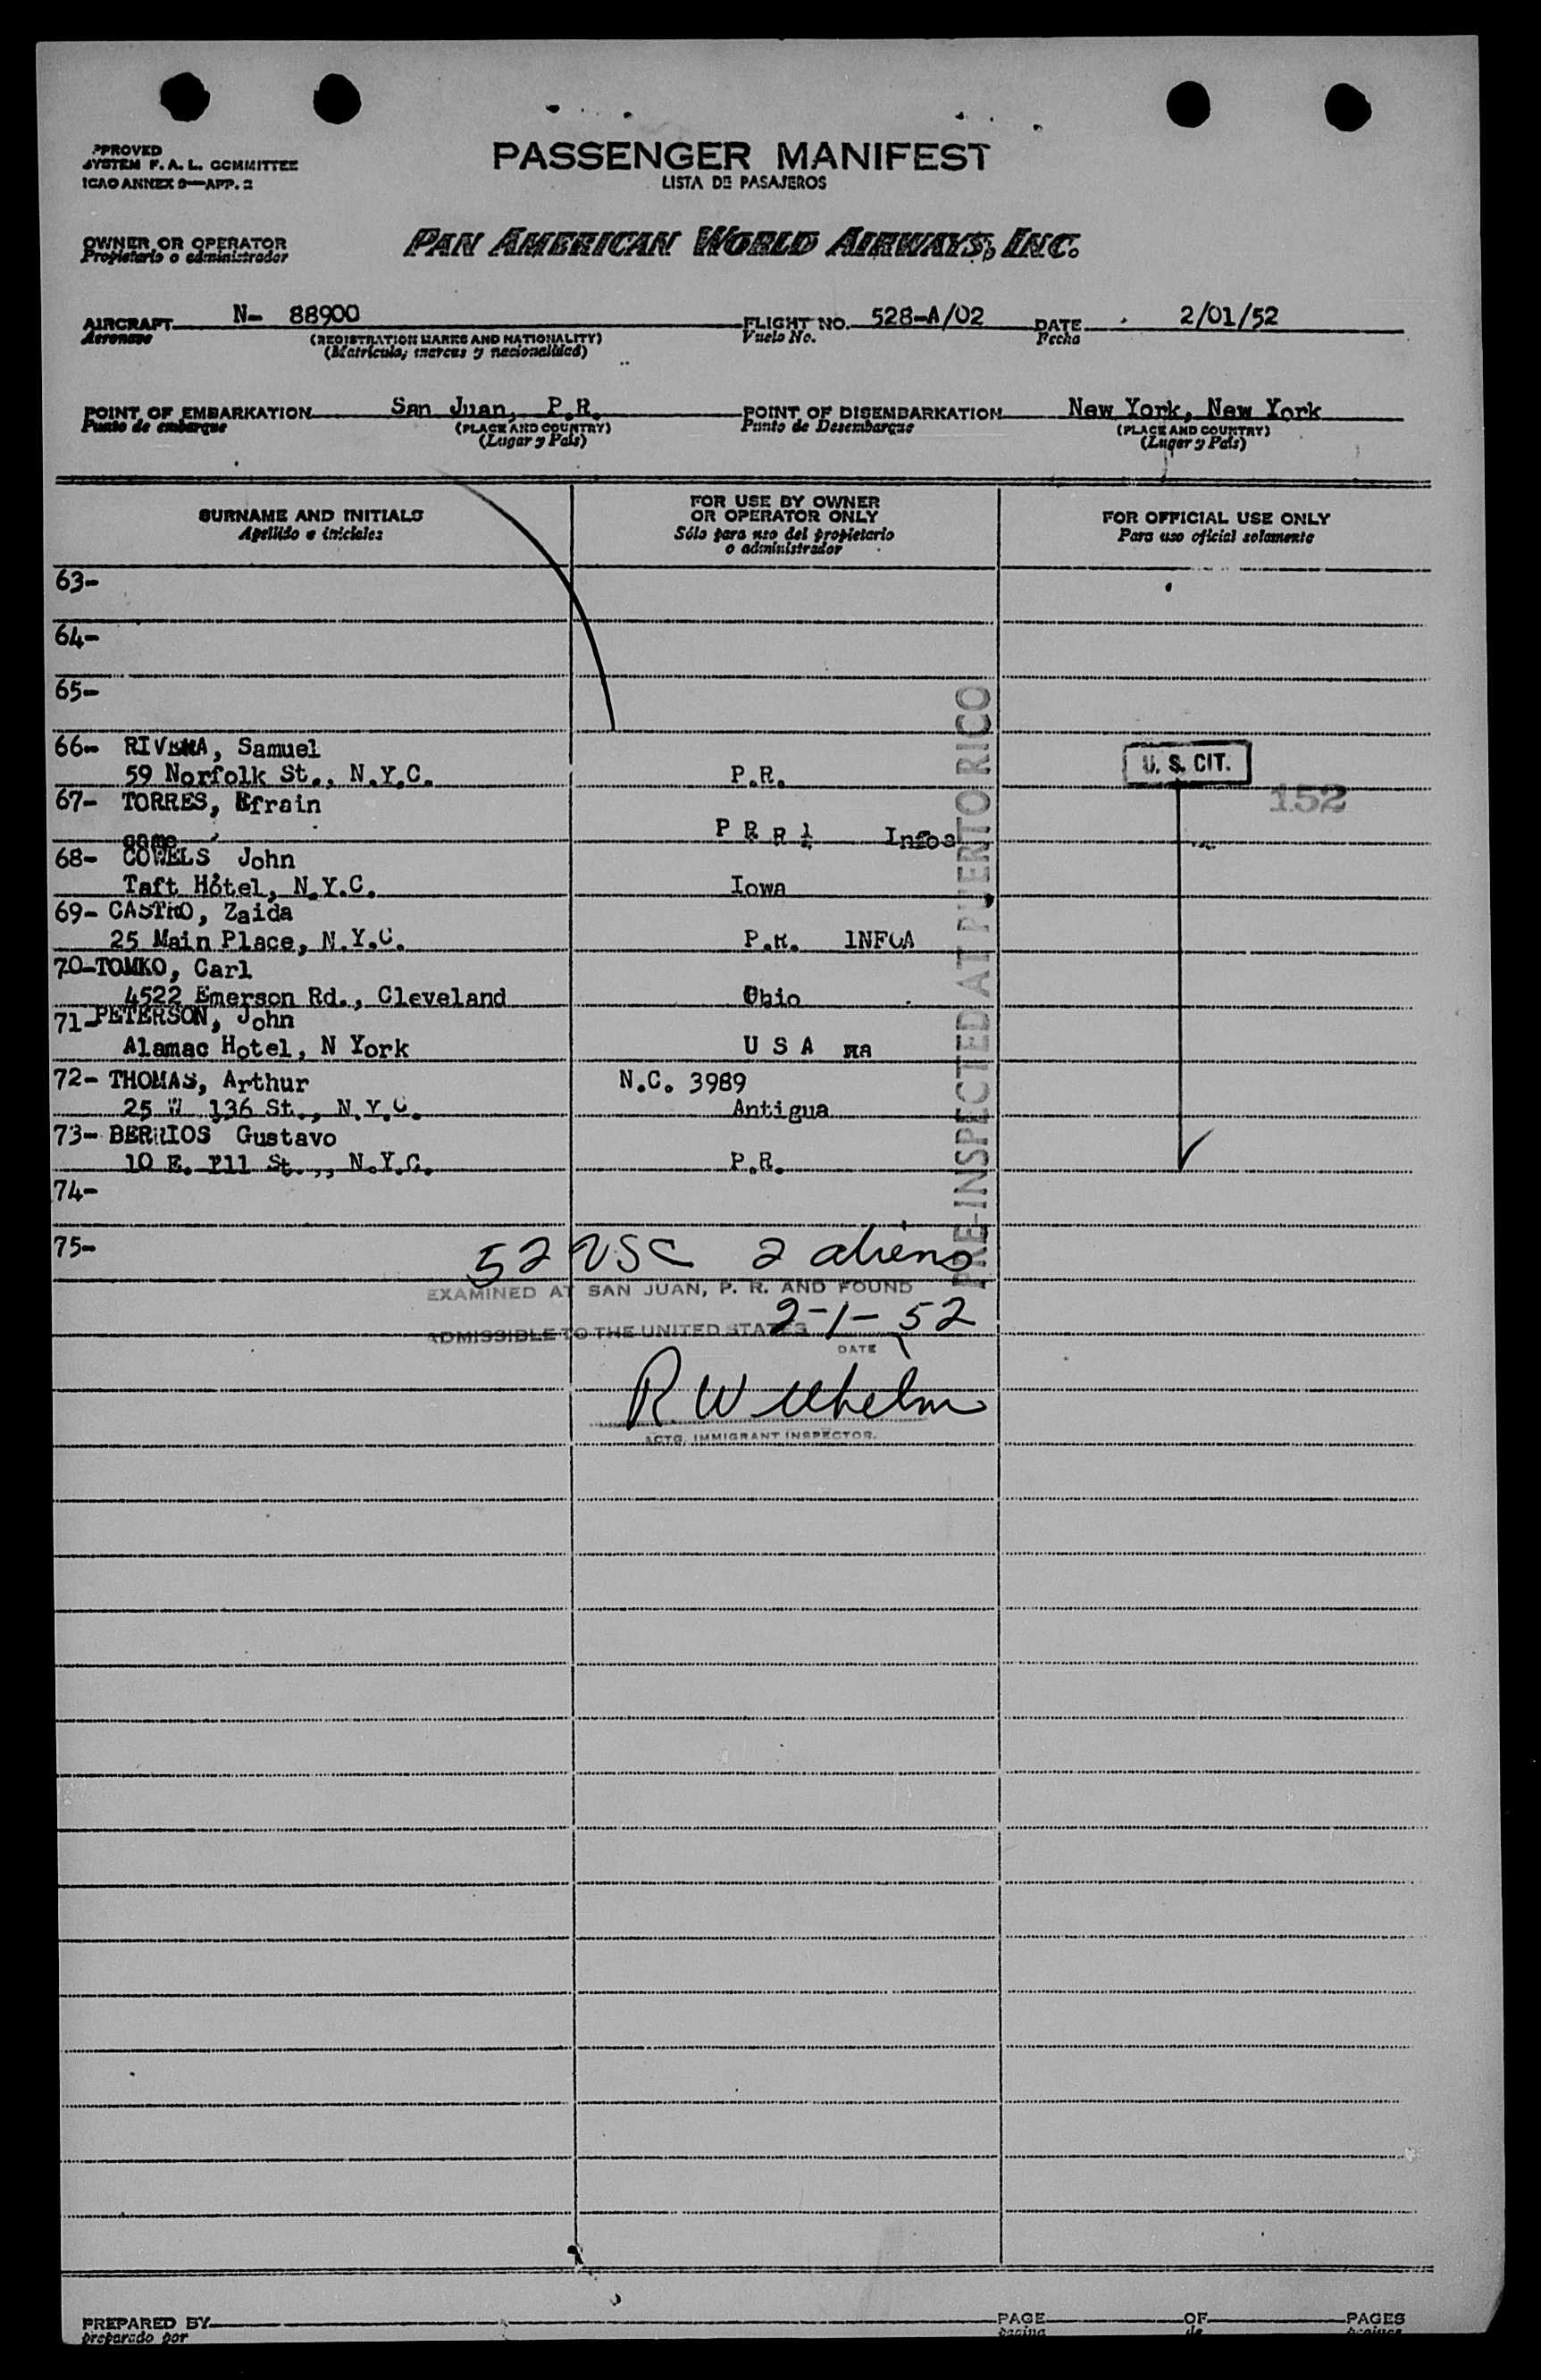 PPROVED
SYSTEM F. A. L. COMMITTEE
ICAO ANNEX 9—APP. 2
PASSENGER MANIFEST
LISTA DE PASAJEROS
OWNER OR OPERATOR
Propietario o administrador
PAN AMERICAN WORLD AIRWAYS, INC.
AIRCRAFT N- 88900 FLIGHT NO. 528-A/02 DATE 2/01/52
Aeronave (REGISTRATION MARKS AND NATIONALITY) Vuelo No. Fecha
(Matrícula, marcas y nacionalidad)
POINT OF EMBARKATION San Juan, P.R. POINT OF DISEMBARKATION New York, New York
Punto de embarque (PLACE AND COUNTRY) Punto de Desembarque (PLACE AND COUNTRY)
(Lugar y País) (Lugar y País)
SURNAME AND INITIALS
Apellido e iniciales
FOR USE BY OWNER
OR OPERATOR ONLY
Sólo para uso del propietario
o administrador
FOR OFFICIAL USE ONLY
Para uso oficial solamente
63-
64-
65-
66- RIVERA, Samuel
59 Norfolk St., N.Y.C. P.R. U. S. CIT.
67- TORRES, Efrain 152
same P R R 1 Infoa
68- COWELS John
Taft Hotel, N.Y.C. Iowa
69- CASTRO, Zaida
25 Main Place, N.Y.C. P.R. INFOA
70-TOMKO, Carl
4522 Emerson Rd., Cleveland Ohio
71-PETERSON, John
Alamac Hotel, N York U S A
72- THOMAS, Arthur N.C. 3989
25 W 136 St., N.Y.C. Antigua
73- BERRIOS Gustavo
10 E. 111 St.,, N.Y.C. P.R.
74-
75-
PRE-INSPECTED AT PUERTO RICO
52 USC 2 aliens
EXAMINED AT SAN JUAN, P. R. AND FOUND
ADMISSIBLE TO THE UNITED STATES 2-1-52
DATE
R Wilhelm
ACTG. IMMIGRANT INSPECTOR.
PREPARED BY PAGE OF PAGES
preparado por página de páginas